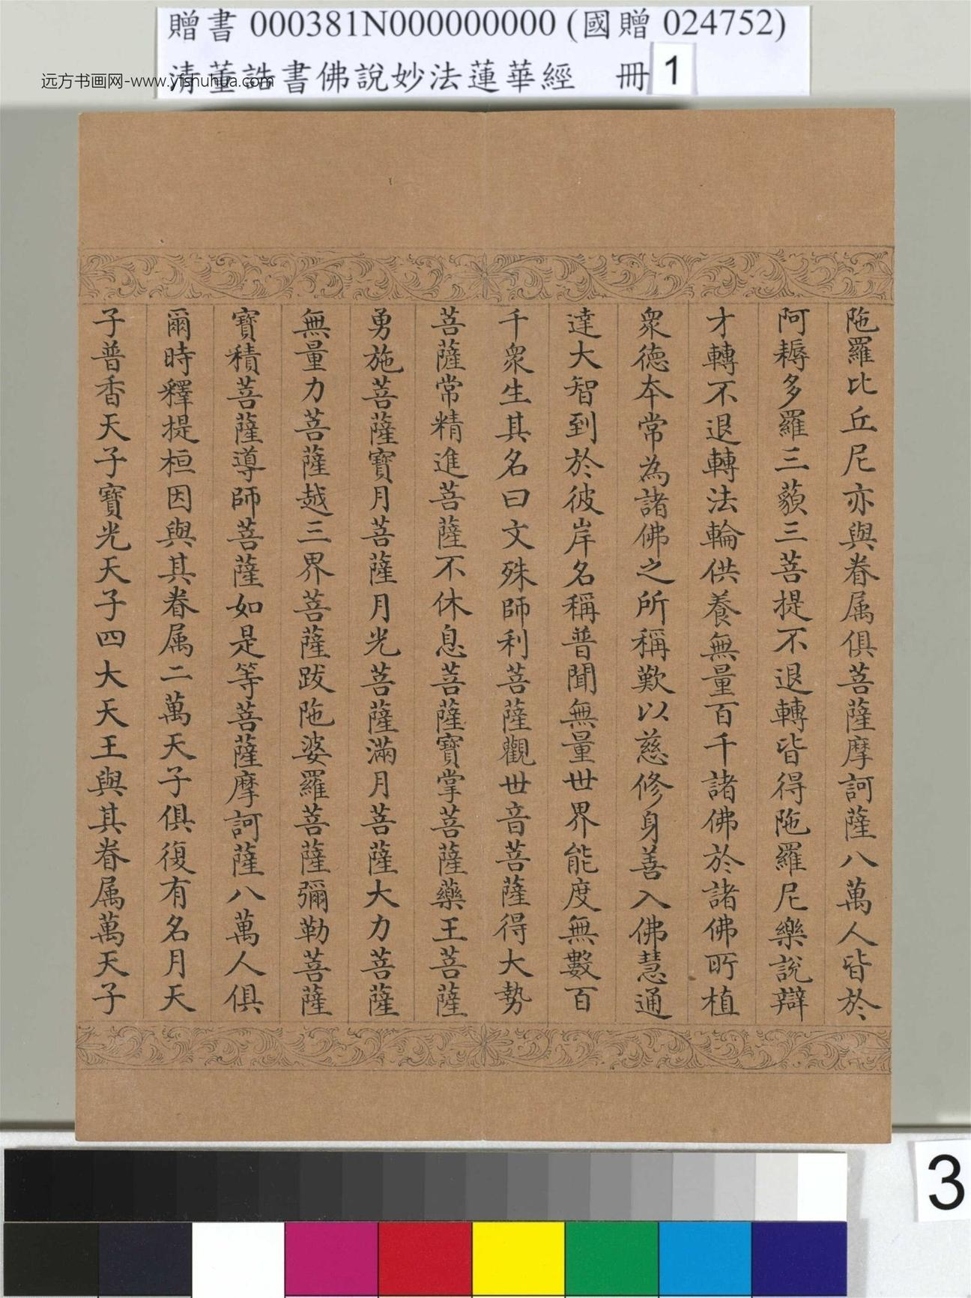 贈書 000381N000000000 (國贈 024752)
清董誥書佛說妙法蓮華經 冊 1
远方书画网-www.yishuhua.com
陁羅比丘尼亦與眷属俱菩薩摩訶薩八萬人皆於
阿耨多羅三藐三菩提不退轉皆得陁羅尼樂說辯
才轉不退轉法輪供養無量百千諸佛於諸佛所植
衆德本常為諸佛之所稱歎以慈修身善入佛慧通
達大智到於彼岸名稱普聞無量世界能度無數百
千衆生其名曰文殊師利菩薩觀世音菩薩得大勢
菩薩常精進菩薩不休息菩薩寶掌菩薩藥王菩薩
勇施菩薩寶月菩薩月光菩薩滿月菩薩大力菩薩
無量力菩薩越三界菩薩跋陁婆羅菩薩彌勒菩薩
寶積菩薩導師菩薩如是等菩薩摩訶薩八萬人俱
爾時釋提桓因與其眷属二萬天子俱復有名月天
子普香天子寶光天子四大天王與其眷属萬天子
3